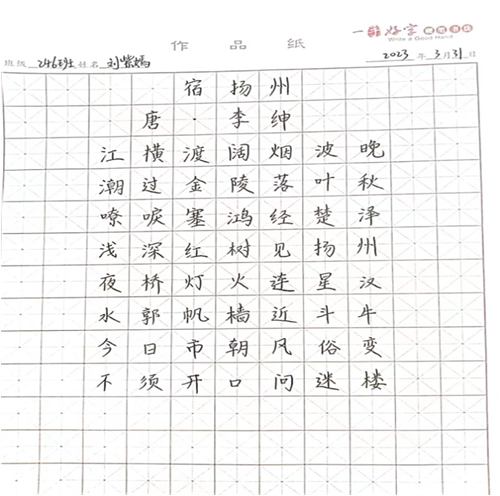 一手好字 硬笔书法
Write a Good Hand
作品纸
班级 246班 姓名 刘紫嫣 2023年3月31日
宿扬州
唐·李绅
江横渡阔烟波晚
潮过金陵落叶秋
嘹唳塞鸿经楚泽
浅深红树见扬州
夜桥灯火连星汉
水郭帆樯近斗牛
今日市朝风俗变
不须开口问迷楼